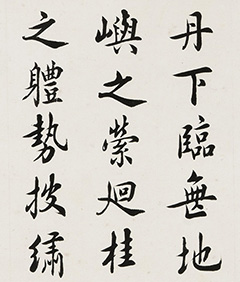 丹下臨無地
嶼之縈迴桂
之體勢披繡